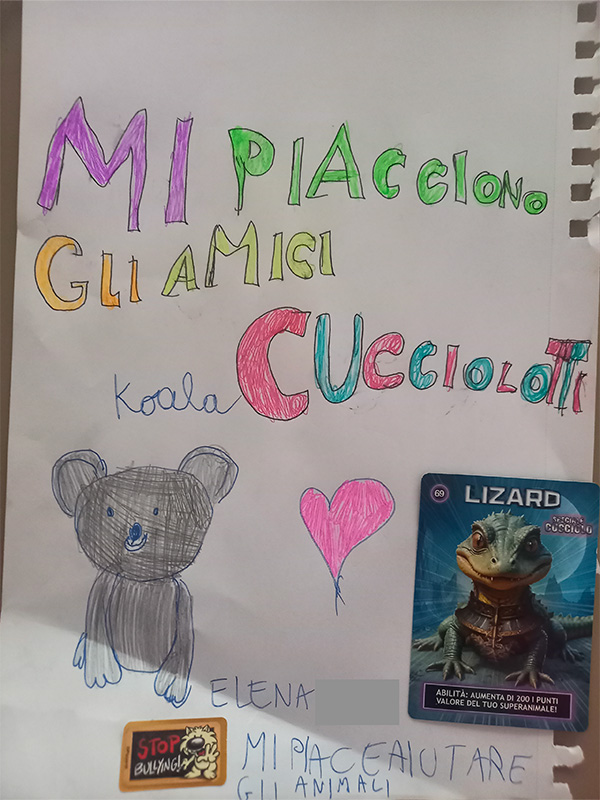 MI PIACCIONO
GLI AMICI
CUCCIOLOTTI
Koala
69 LIZARD
SPECIALE
CUCCIOLI
ABILITÀ: AUMENTA DI 200 I PUNTI
VALORE DEL TUO SUPERANIMALE!
ELENA
STOP
BULLYING!
MI PIACE AIUTARE
GLI ANIMALI